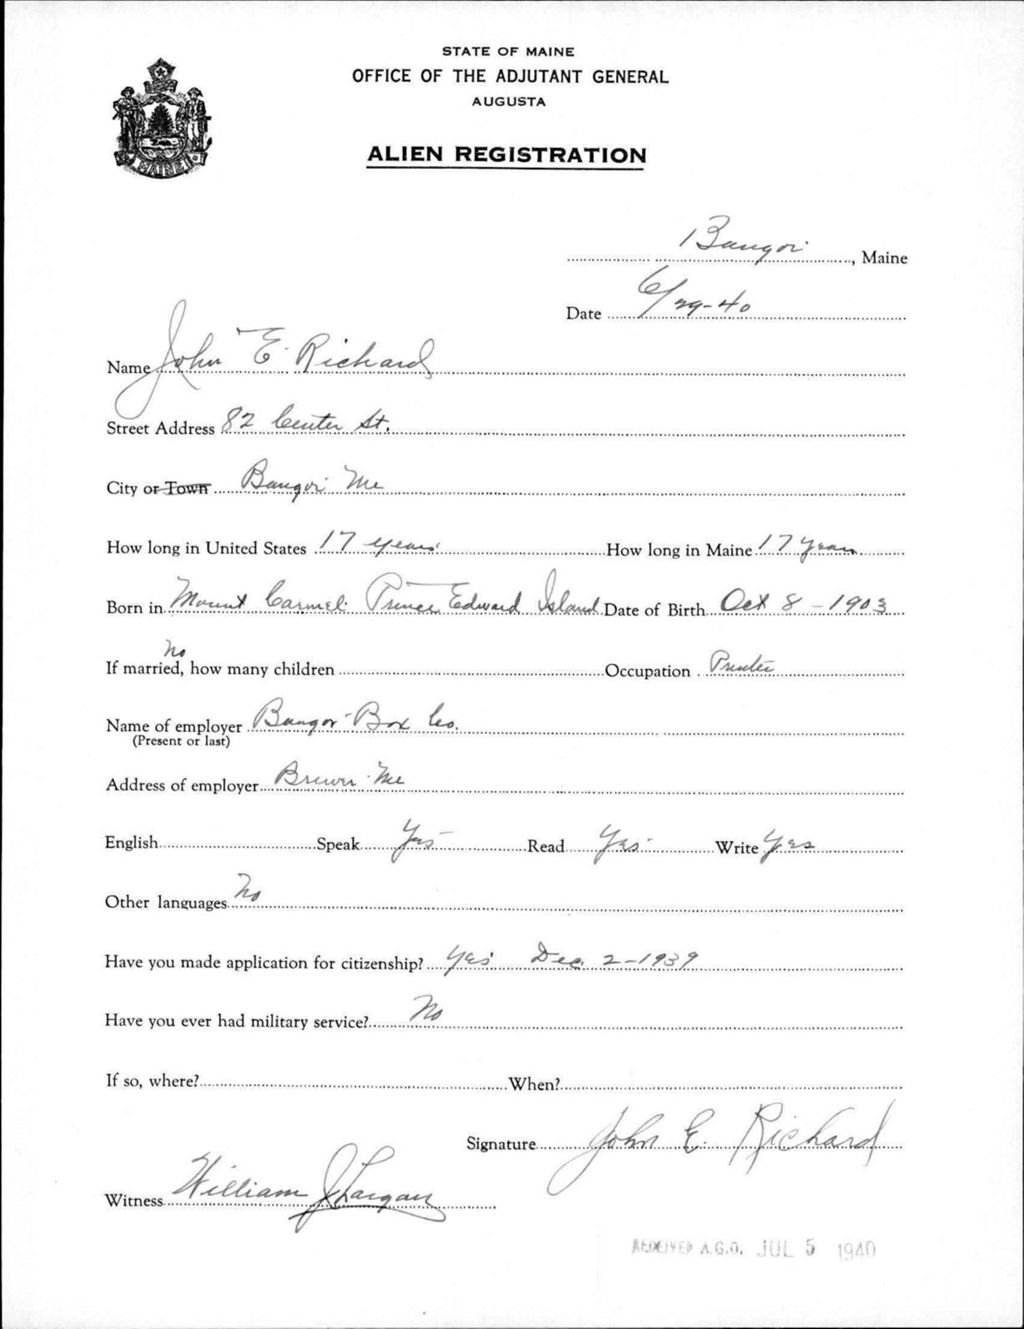 STATE OF MAINE
OFFICE OF THE ADJUTANT GENERAL
AUGUSTA
ALIEN REGISTRATION
MAINE
Bangor, Maine
Date 6/29-40
Name John E. Richard
Street Address 82 Center St.
City or Town Bangor Me
How long in United States 17 years How long in Maine 17 Years
Born in Mount Carmel Prince Edward Island Date of Birth Oct 8 - 1903
No
If married, how many children Occupation Printer
Name of employer Bangor Box Co.
(Present or last)
Address of employer Brewer Me
English Speak Yes Read Yes Write Yes
Other languages No
Have you made application for citizenship? Yes Dec. 2-1939
Have you ever had military service? No
If so, where? When?
Signature John E. Richard
Witness William J Largay
RECEIVED A.G.O. JUL 5 1940